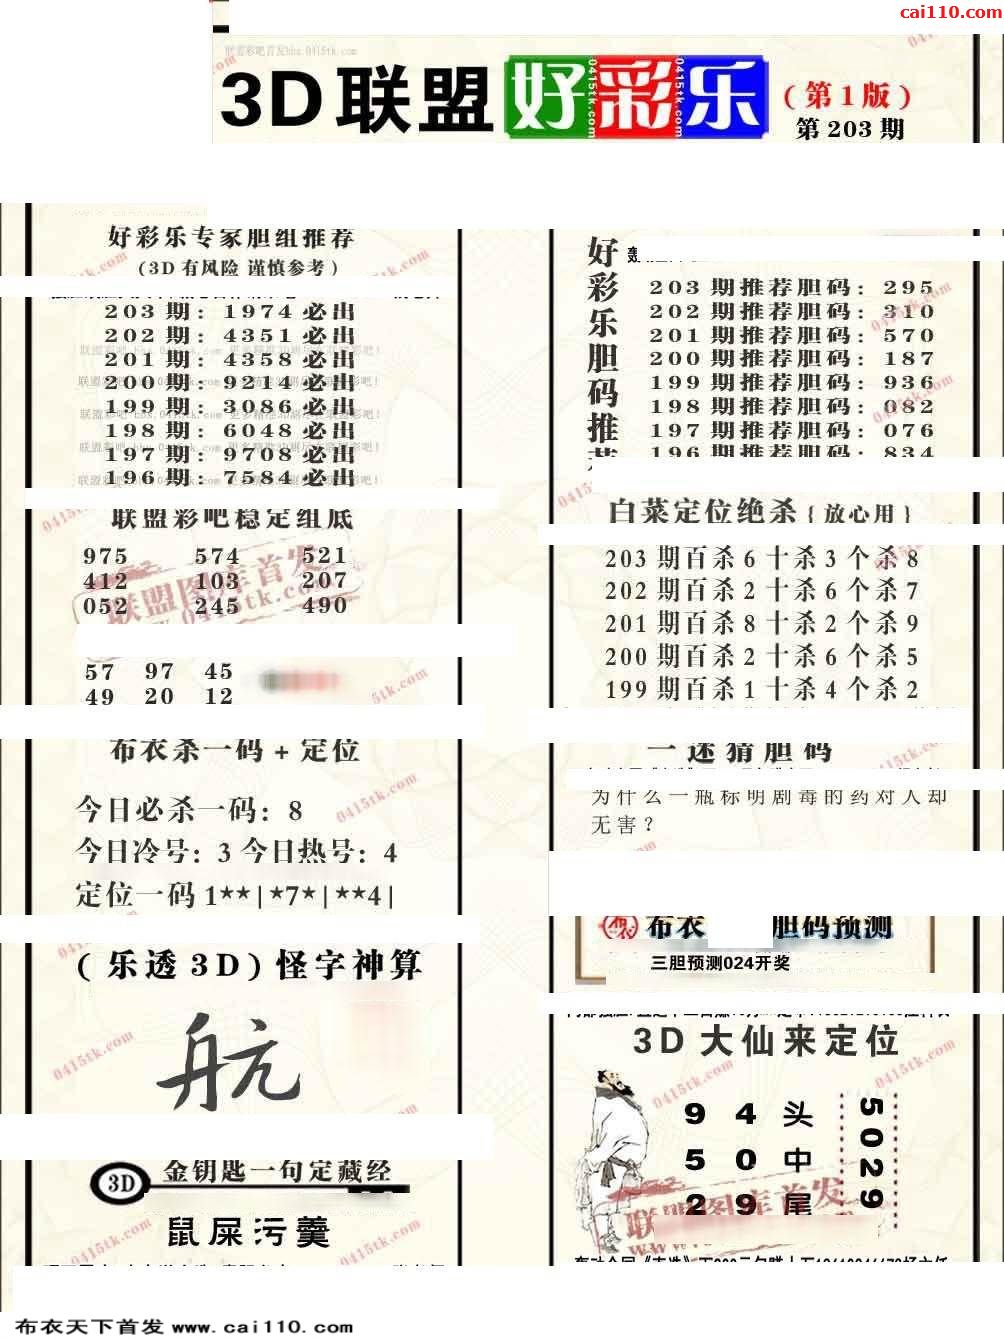 cai110.com
3D联盟 好彩乐 (第1版)
第203期
好彩乐专家胆组推荐
(3D有风险 谨慎参考)
203期: 1974必出
202期: 4351必出
201期: 4358必出
200期: 9214必出
199期: 3086必出
198期: 6048必出
197期: 9708必出
196期: 7584必出
联盟彩吧稳定组底
975 574 521
412 103 207
052 245 490
57 97 45
49 20 12
布衣杀一码+定位
今日必杀一码: 8
今日冷号: 3 今日热号: 4
定位一码 1**|*7*|**4|
(乐透3D)怪字神算
3D 金钥匙一句定藏经
鼠屎污羹
好彩乐胆码推荐
203期推荐胆码: 295
202期推荐胆码: 310
201期推荐胆码: 570
200期推荐胆码: 187
199期推荐胆码: 936
198期推荐胆码: 082
197期推荐胆码: 076
196期推荐胆码: 834
白菜定位绝杀{放心用}
203期百杀6十杀3个杀8
202期百杀2十杀6个杀7
201期百杀8十杀2个杀9
200期百杀2十杀6个杀5
199期百杀1十杀4个杀2
一迷猜胆码
为什么一瓶标明剧毒的药对人却
无害?
布衣 胆码预测
三胆预测024开奖
3D大仙来定位
9 4 头
5 0 中
2 9 尾
5029
联盟图库首发
0415tk.com
布衣天下首发 www.cai110.com